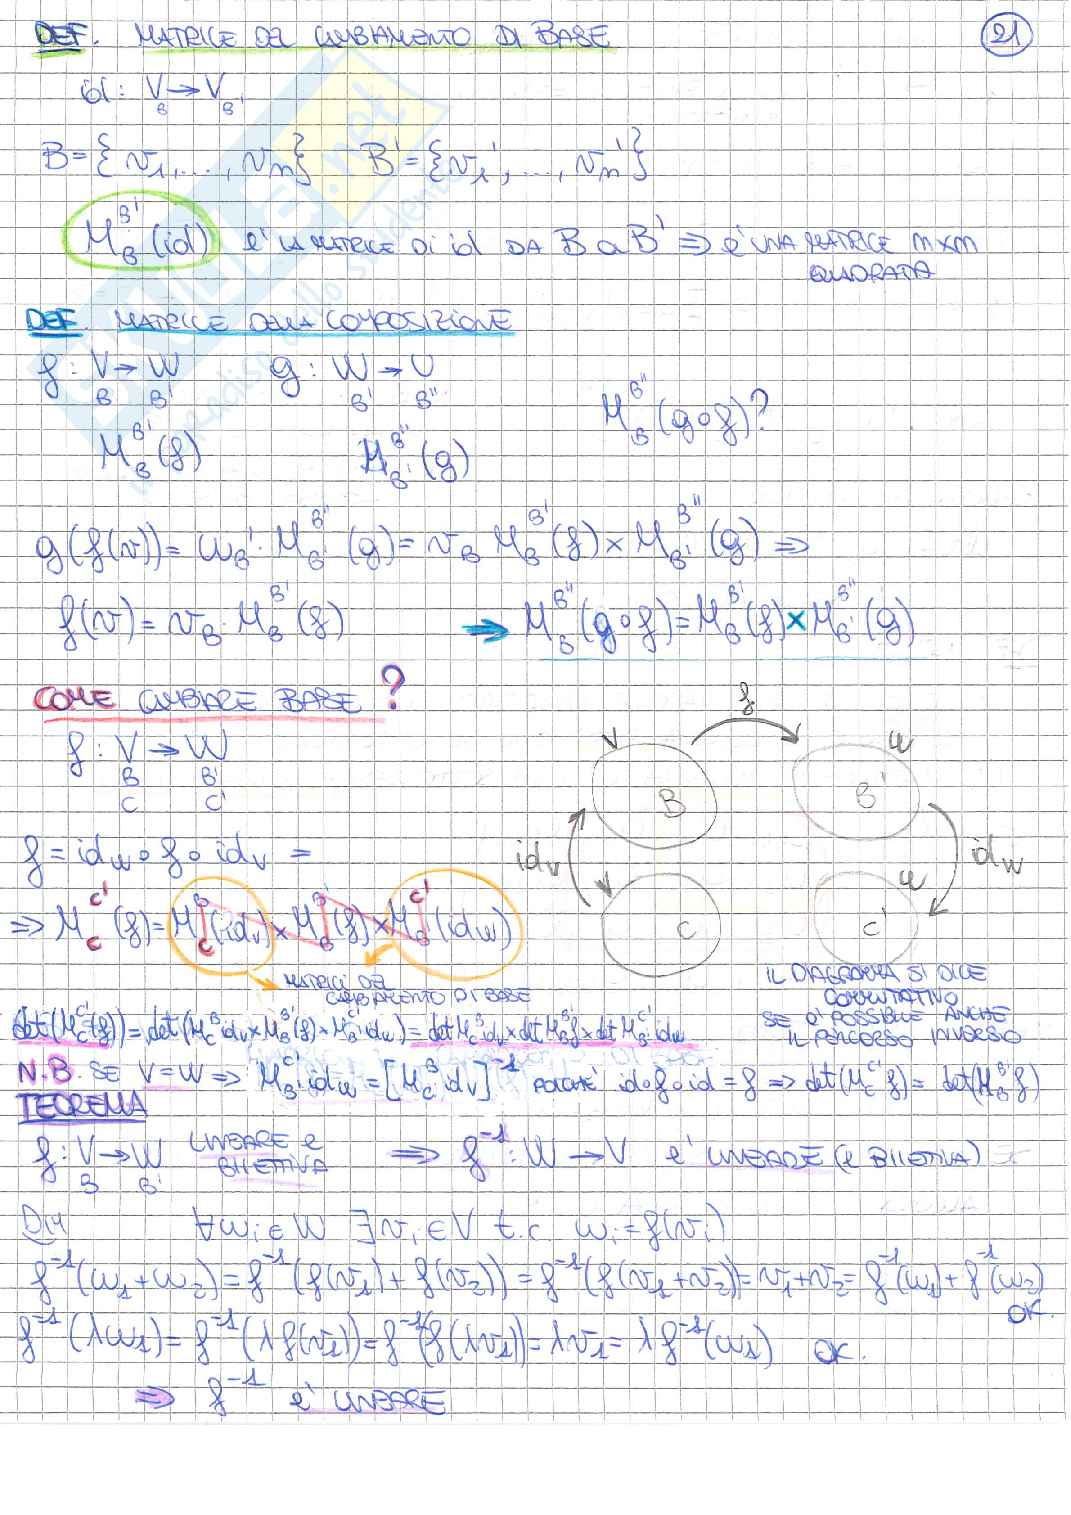 DEF. MATRICE DEL CAMBIAMENTO DI BASE
21
id: V_B → V_B'
B = {v₁, ..., vₙ}   B' = {v₁', ..., vₙ'}
M_B^B' (id) è LA MATRICE DI id DA B a B' ⇒ è UNA MATRICE n×n
QUADRATA
DEF. MATRICE DELLA COMPOSIZIONE
f: V → W   g: W → U
B   B'   B'   B''
M_B^B'' (g∘f)?
M_B^B' (f)   M_B'^B'' (g)
g(f(v)) = w_B' · M_B'^B'' (g) = v_B M_B^B' (f) × M_B'^B'' (g) ⇒
f(v) = v_B · M_B^B' (f)   → M_B^B'' (g∘f) = M_B^B' (f) × M_B'^B'' (g)
COME CAMBIARE BASE?
f: V → W
B   B'
C   C'
f
V   W
B   B'
id_V   id_W
V   W
C   C'
f = id_W ∘ f ∘ id_V =
⇒ M_C^C' (f) = M_C^B (id_V) × M_B^B' (f) × M_B'^C' (id_W)
MATRICI DEL
CAMBIAMENTO DI BASE
IL DIAGRAMMA SI DICE
COMMUTATIVO
SE È POSSIBILE ANCHE
IL PERCORSO INVERSO
det(M_C^C'(f)) = det(M_C^B id_V × M_B^B'(f) × M_B'^C' id_W) = det M_C^B id_V × det M_B^B' f × det M_B'^C' id_W
N.B. SE V = W ⇒ M_B'^C' id_W = [M_C^B id_V]^-1 PERCHÉ id∘f∘id = f ⇒ det(M_C^C' f) = det(M_B^B' f)
TEOREMA
f: V → W LINEARE e BIIETTIVA ⇒ f^-1: W → V è LINEARE (e BIIETTIVA)
B   B'
DIM   ∀w_i ∈ W ∃v_i ∈ V t.c. w_i = f(v_i)
f^-1(w₁+w₂) = f^-1(f(v₁)+f(v₂)) = f^-1(f(v₁+v₂)) = v₁+v₂ = f^-1(w₁)+f^-1(w₂)
OK.
f^-1(λw₁) = f^-1(λf(v₁)) = f^-1(f(λv₁)) = λv₁ = λf^-1(w₁)   OK.
⇒ f^-1 è LINEARE